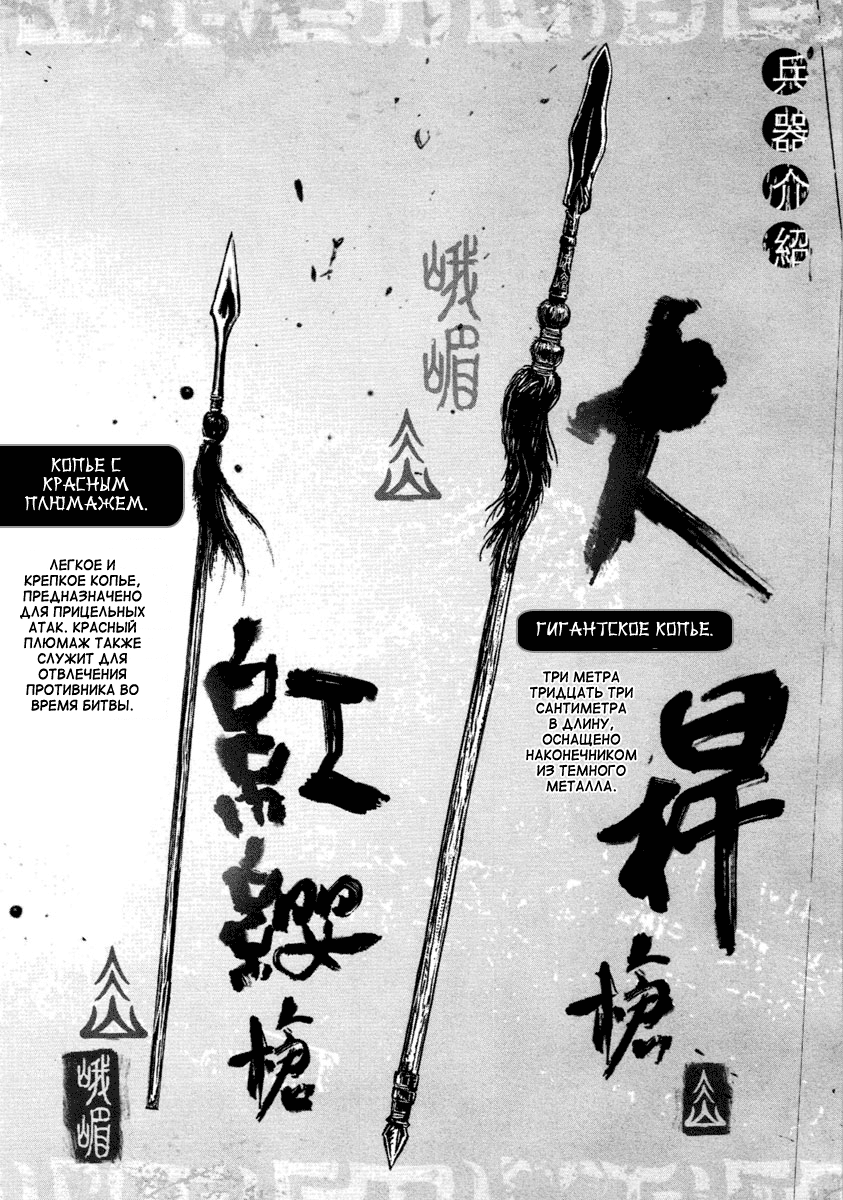 兵器介紹
峨嵋
大桿槍
КОПЬЕ С
КРАСНЫМ
ПЛЮМАЖЕМ.
ЛЕГКОЕ И
КРЕПКОЕ КОПЬЕ,
ПРЕДНАЗНАЧЕНО
ДЛЯ ПРИЦЕЛЬНЫХ
АТАК. КРАСНЫЙ
ПЛЮМАЖ ТАКЖЕ
СЛУЖИТ ДЛЯ
ОТВЛЕЧЕНИЯ
ПРОТИВНИКА ВО
ВРЕМЯ БИТВЫ.
ГИГАНТСКОЕ КОПЬЕ.
ТРИ МЕТРА
ТРИДЦАТЬ ТРИ
САНТИМЕТРА
В ДЛИНУ,
ОСНАЩЕНО
НАКОНЕЧНИКОМ
ИЗ ТЕМНОГО
МЕТАЛЛА.
紅纓槍
峨嵋